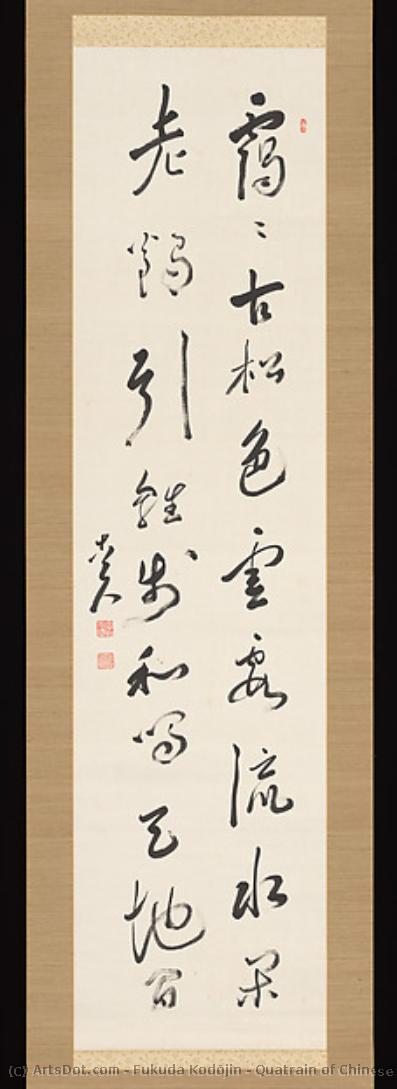 靄〻古松色雲霞流水閑
老鶴引雛步和鳴天地間
(C) ArtsDot.com - Fukuda Kodōjin - Quatrain of Chinese